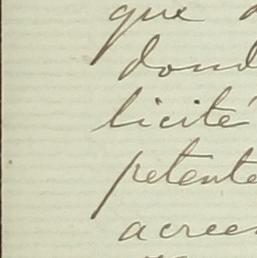 que
dond
licité
petente
acree